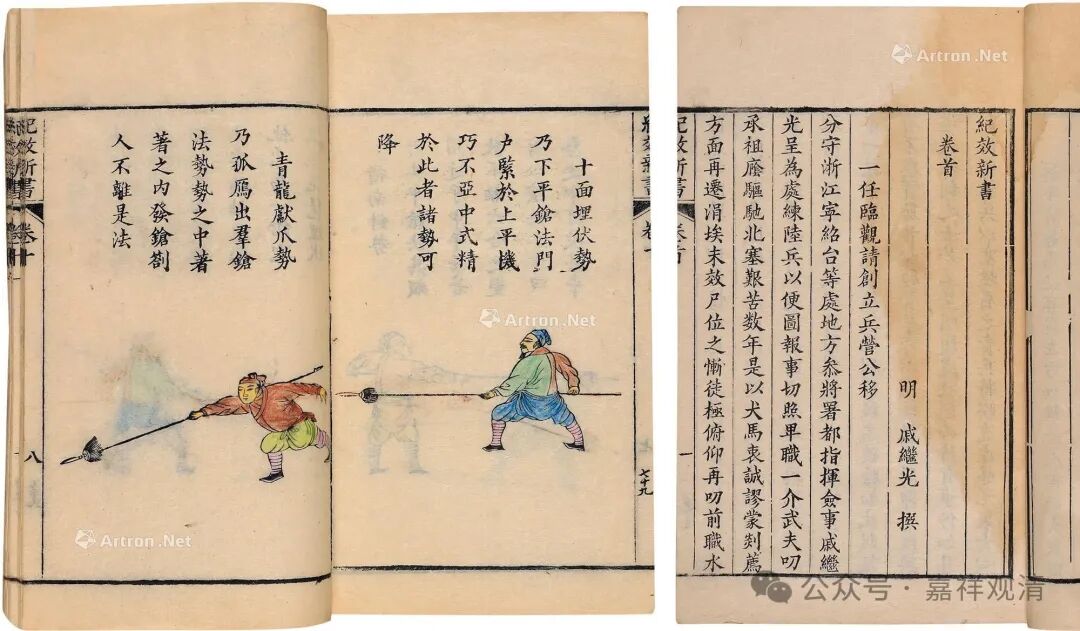 十面埋伏勢
乃下平鎗法門
户緊於上平機
巧不亞中式精
於此者諸勢可
降
七十九
青龍獻爪勢
乃孤鴈出羣鎗
法勢勢之中著
著之内發鎗劄
人不離是法
紀效新書
卷十
八
紀效新書
卷首
明 戚繼光 撰
一任臨觀請創立兵營公移
分守浙江寧紹台等處地方參將署都指揮僉事戚繼
光呈為處練陸兵以便圖報事切照卑職一介武夫叨
承祖廕驅馳北塞艱苦数年是以犬馬衷誠謬蒙剡薦
方面再遷涓埃未效尸位之慚徒極俯仰再叨前職水
紀效新書
卷首
一
Artron.Net
Artron.Net
Artron.Net
公众号·嘉祥观清